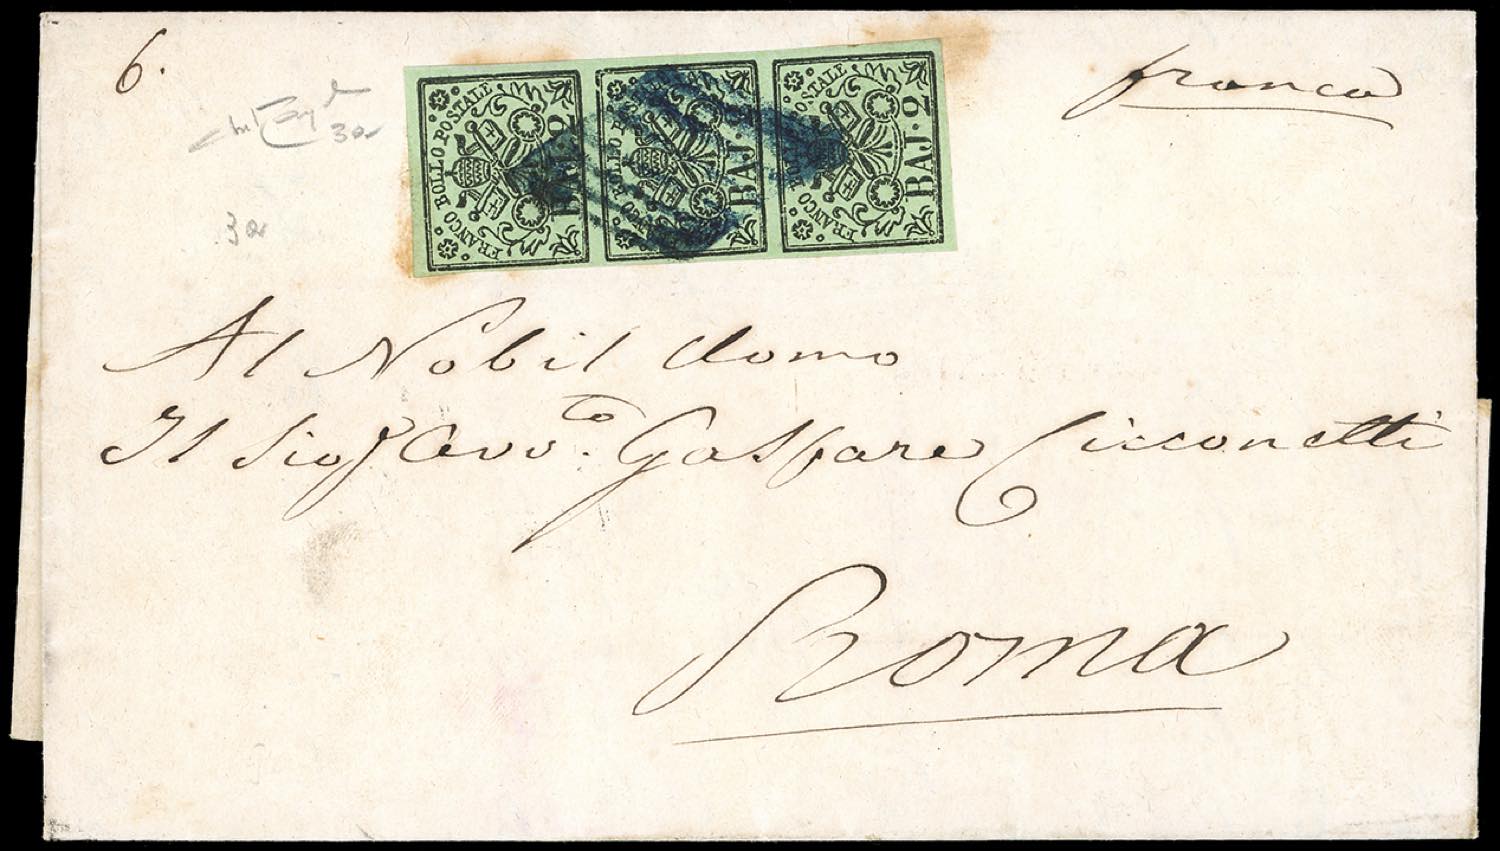 6.
franco
FRANCO BOLLO POSTALE
BAJ. 2
FRANCO BOLLO POSTALE
BAJ. 2
FRANCO BOLLO POSTALE
BAJ. 2
30
30
Al Nobil Uomo
Il Sigr Avvto. Gaspare Cicconetti
Roma